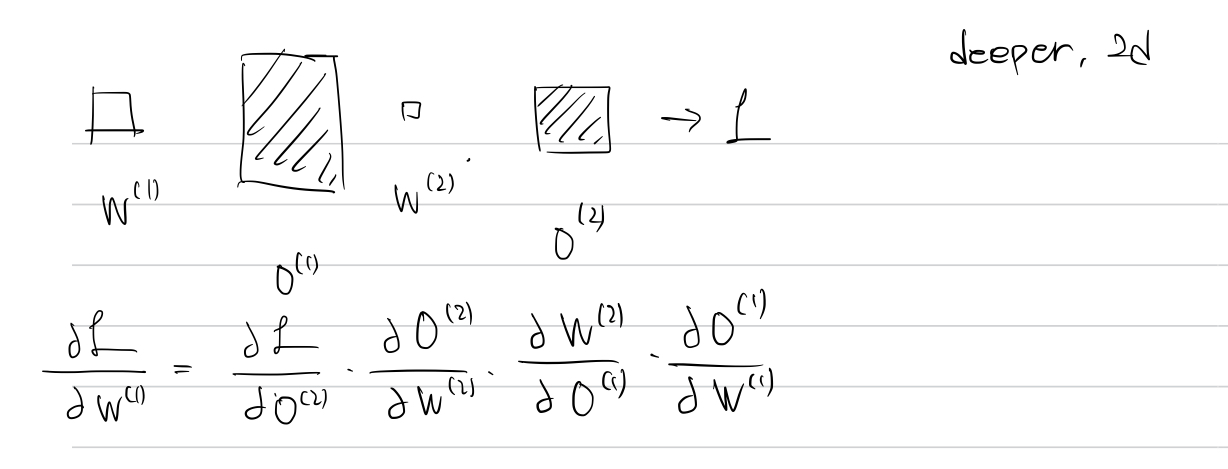 deeper, 2d
→ L
W^(1)
W^(2)
O^(2)
O^(1)
∂L/∂W^(1) = ∂L/∂O^(2) · ∂O^(2)/∂W^(2) · ∂W^(2)/∂O^(1) · ∂O^(1)/∂W^(1)